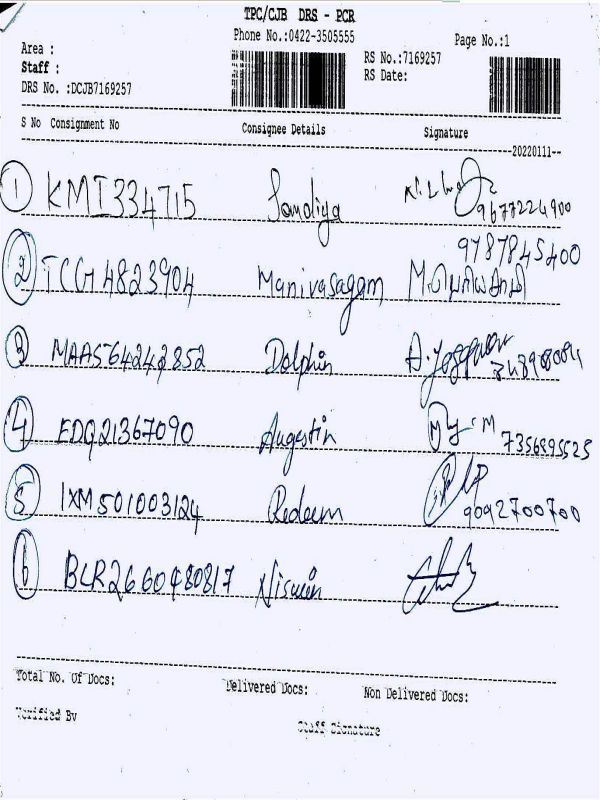 TPC/CJB DRS - PCR
Phone No.:0422-3505555
Page No.:1
Area :
Staff :
DRS No. :DCJB7169257
RS No.:7169257
RS Date:
S No Consignment No Consignee Details Signature
20220111
1 KMI334715 Samoliya 9677224900
9787845400
2 TCG4823904 Manivasagam M.
3 MAA564242852 Dolphin
4 EDQ21367090 Augestin 7356895525
5 IXM501003124 Redeem 9092700700
6 BLR2660480817
Total No. Of Docs: Delivered Docs: Non Delivered Docs:
Verified By Staff Signature